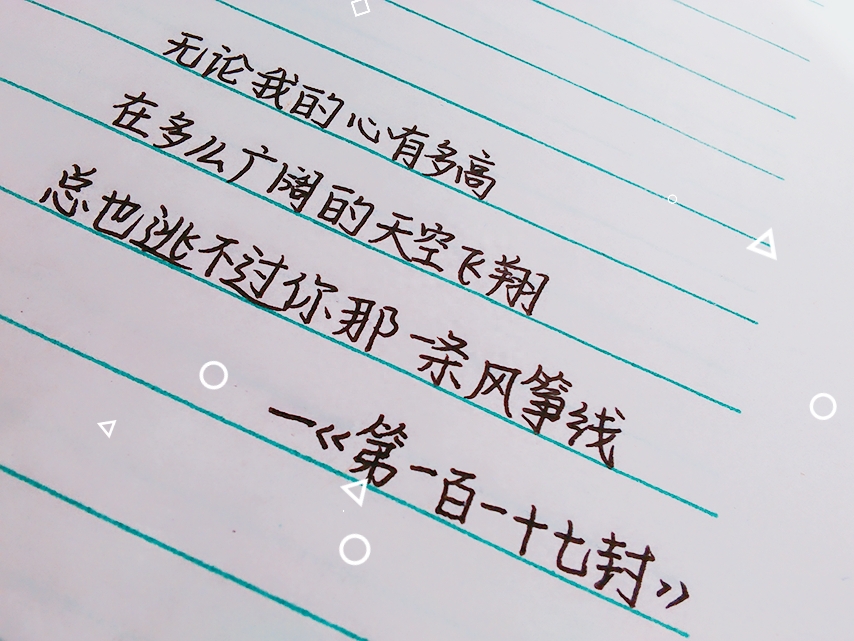 无论我的心有多高
在多么广阔的天空飞翔
总也逃不过你那一条风筝线
—《第一百一十七封》